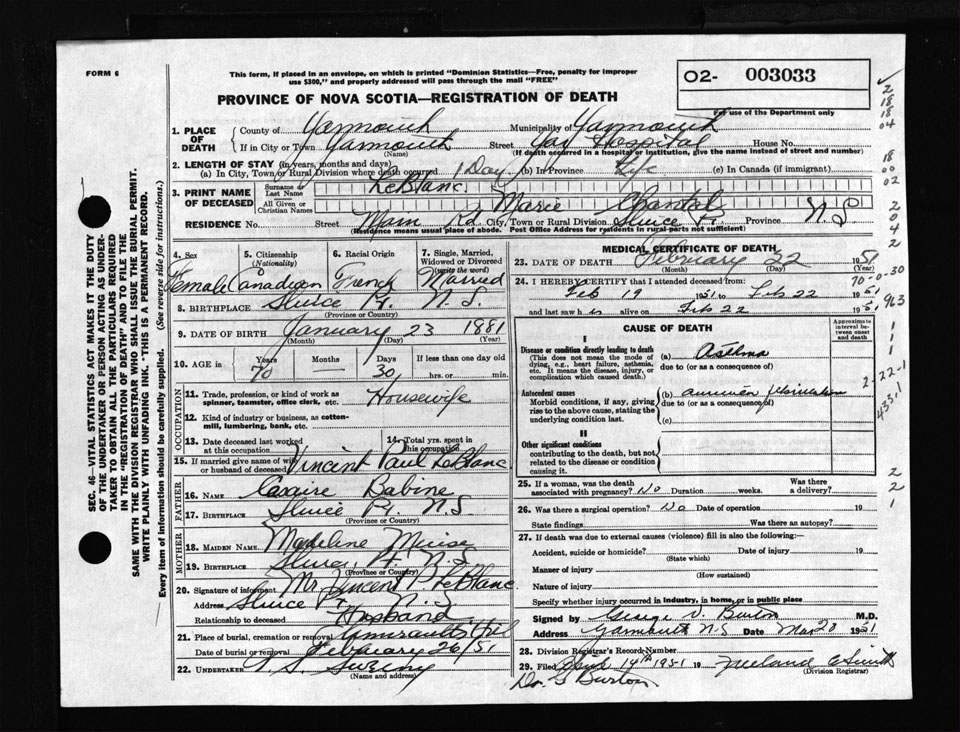 FORM 6
This form, if placed in an envelope, on which is printed "Dominion Statistics—Free, penalty for improper
use $300," and properly addressed will pass through the mail "FREE"
O2- 003033
For use of the Department only
PROVINCE OF NOVA SCOTIA—REGISTRATION OF DEATH
1. PLACE OF DEATH County of Yarmouth Municipality of Yarmouth
If in City or Town Yarmouth Street Hospital House No.
(Name) (If death occurred in a hospital or institution, give the name instead of street and number)
2. LENGTH OF STAY (in years, months and days)
(a) In City, Town or Rural Division where death occurred 1 Day (b) In Province Life (c) In Canada (if immigrant)
3. PRINT NAME OF DECEASED Surname or Last Name LeBlanc
All Given or Christian Names Marie Chantal
RESIDENCE No. Street Main Rd. City, Town or Rural Division Sluice Pt. Province N.S.
(Residence means usual place of abode. Post Office Address for residents in rural parts not sufficient)
4. Sex Female
5. Citizenship (Nationality) Canadian
6. Racial Origin French
7. Single, Married, Widowed or Divorced (write the word) Married
8. BIRTHPLACE Sluice Pt. N.S.
(Province or Country)
9. DATE OF BIRTH January 23 1881
(Month) (Day) (Year)
10. AGE in Years 70 Months Days 30 If less than one day old hrs. or min.
OCCUPATION
11. Trade, profession, or kind of work as spinner, teamster, office clerk, etc. Housewife
12. Kind of industry or business, as cotton-mill, lumbering, bank, etc.
13. Date deceased last worked at this occupation
14. Total yrs. spent in this occupation
15. If married give name of wife or husband of deceased Vincent Paul LeBlanc
FATHER
16. NAME Babine
17. BIRTHPLACE Sluice Pt. N.S.
(Province or Country)
MOTHER
18. MAIDEN NAME Madeline Muise
19. BIRTHPLACE Sluice Pt. N.S.
(Province or Country)
20. Signature of informant Mr. Vincent P. LeBlanc
Address Sluice Pt. N.S.
Relationship to deceased Husband
21. Place of burial, cremation or removal Amiraults Hill
Date of burial or removal February 26/51
22. UNDERTAKER Sweeny
(Name and address)
MEDICAL CERTIFICATE OF DEATH
23. DATE OF DEATH February 22 1951
(Month) (Day) (Year)
24. I HEREBY CERTIFY that I attended deceased from:
Feb 19 1951 to Feb 22 1951
and last saw h alive on Feb 22 1951
CAUSE OF DEATH
Approximate interval between onset and death
I
Disease or condition directly leading to death (a) Asthma
(This does not mean the mode of dying, e.g., heart failure, asthenia, etc. It means the disease, injury, or complication which caused death.)
due to (or as a consequence of)
Antecedent causes (b)
Morbid conditions, if any, giving rise to the above cause, stating the underlying condition last.
due to (or as a consequence of)
(c)
II
Other significant conditions
contributing to the death, but not related to the disease or condition causing it.
25. If a woman, was the death associated with pregnancy? No Duration weeks. Was there a delivery?
26. Was there a surgical operation? No Date of operation 19
State findings Was there an autopsy?
27. If death was due to external causes (violence) fill in also the following:—
Accident, suicide or homicide? Date of injury 19
(State which)
Manner of injury
(How sustained)
Nature of injury
Specify whether injury occurred in industry, in home, or in public place
Signed by George V. Burton M.D.
Address Yarmouth N.S Date Mar 23 1951
28. Division Registrar's Record Number
29. Filed April 14th 1951 19
(Division Registrar)
Dr. G Burton
SEC. 46—VITAL STATISTICS ACT MAKES IT THE DUTY
OF THE UNDERTAKER OR PERSON ACTING AS UNDER-
TAKER TO OBTAIN ALL THE PARTICULARS REQUIRED
IN THE "REGISTRATION OF DEATH" AND TO FILE THE
SAME WITH THE DIVISION REGISTRAR WHO SHALL ISSUE THE BURIAL PERMIT.
WRITE PLAINLY WITH UNFADING INK. THIS IS A PERMANENT RECORD.
Every item of information should be carefully supplied. (See reverse side for instructions.)
2
18
18
04
18
00
02
2
0
4
2
70-0-30
963
1
1
1
2-22-1
4331
2
2
1